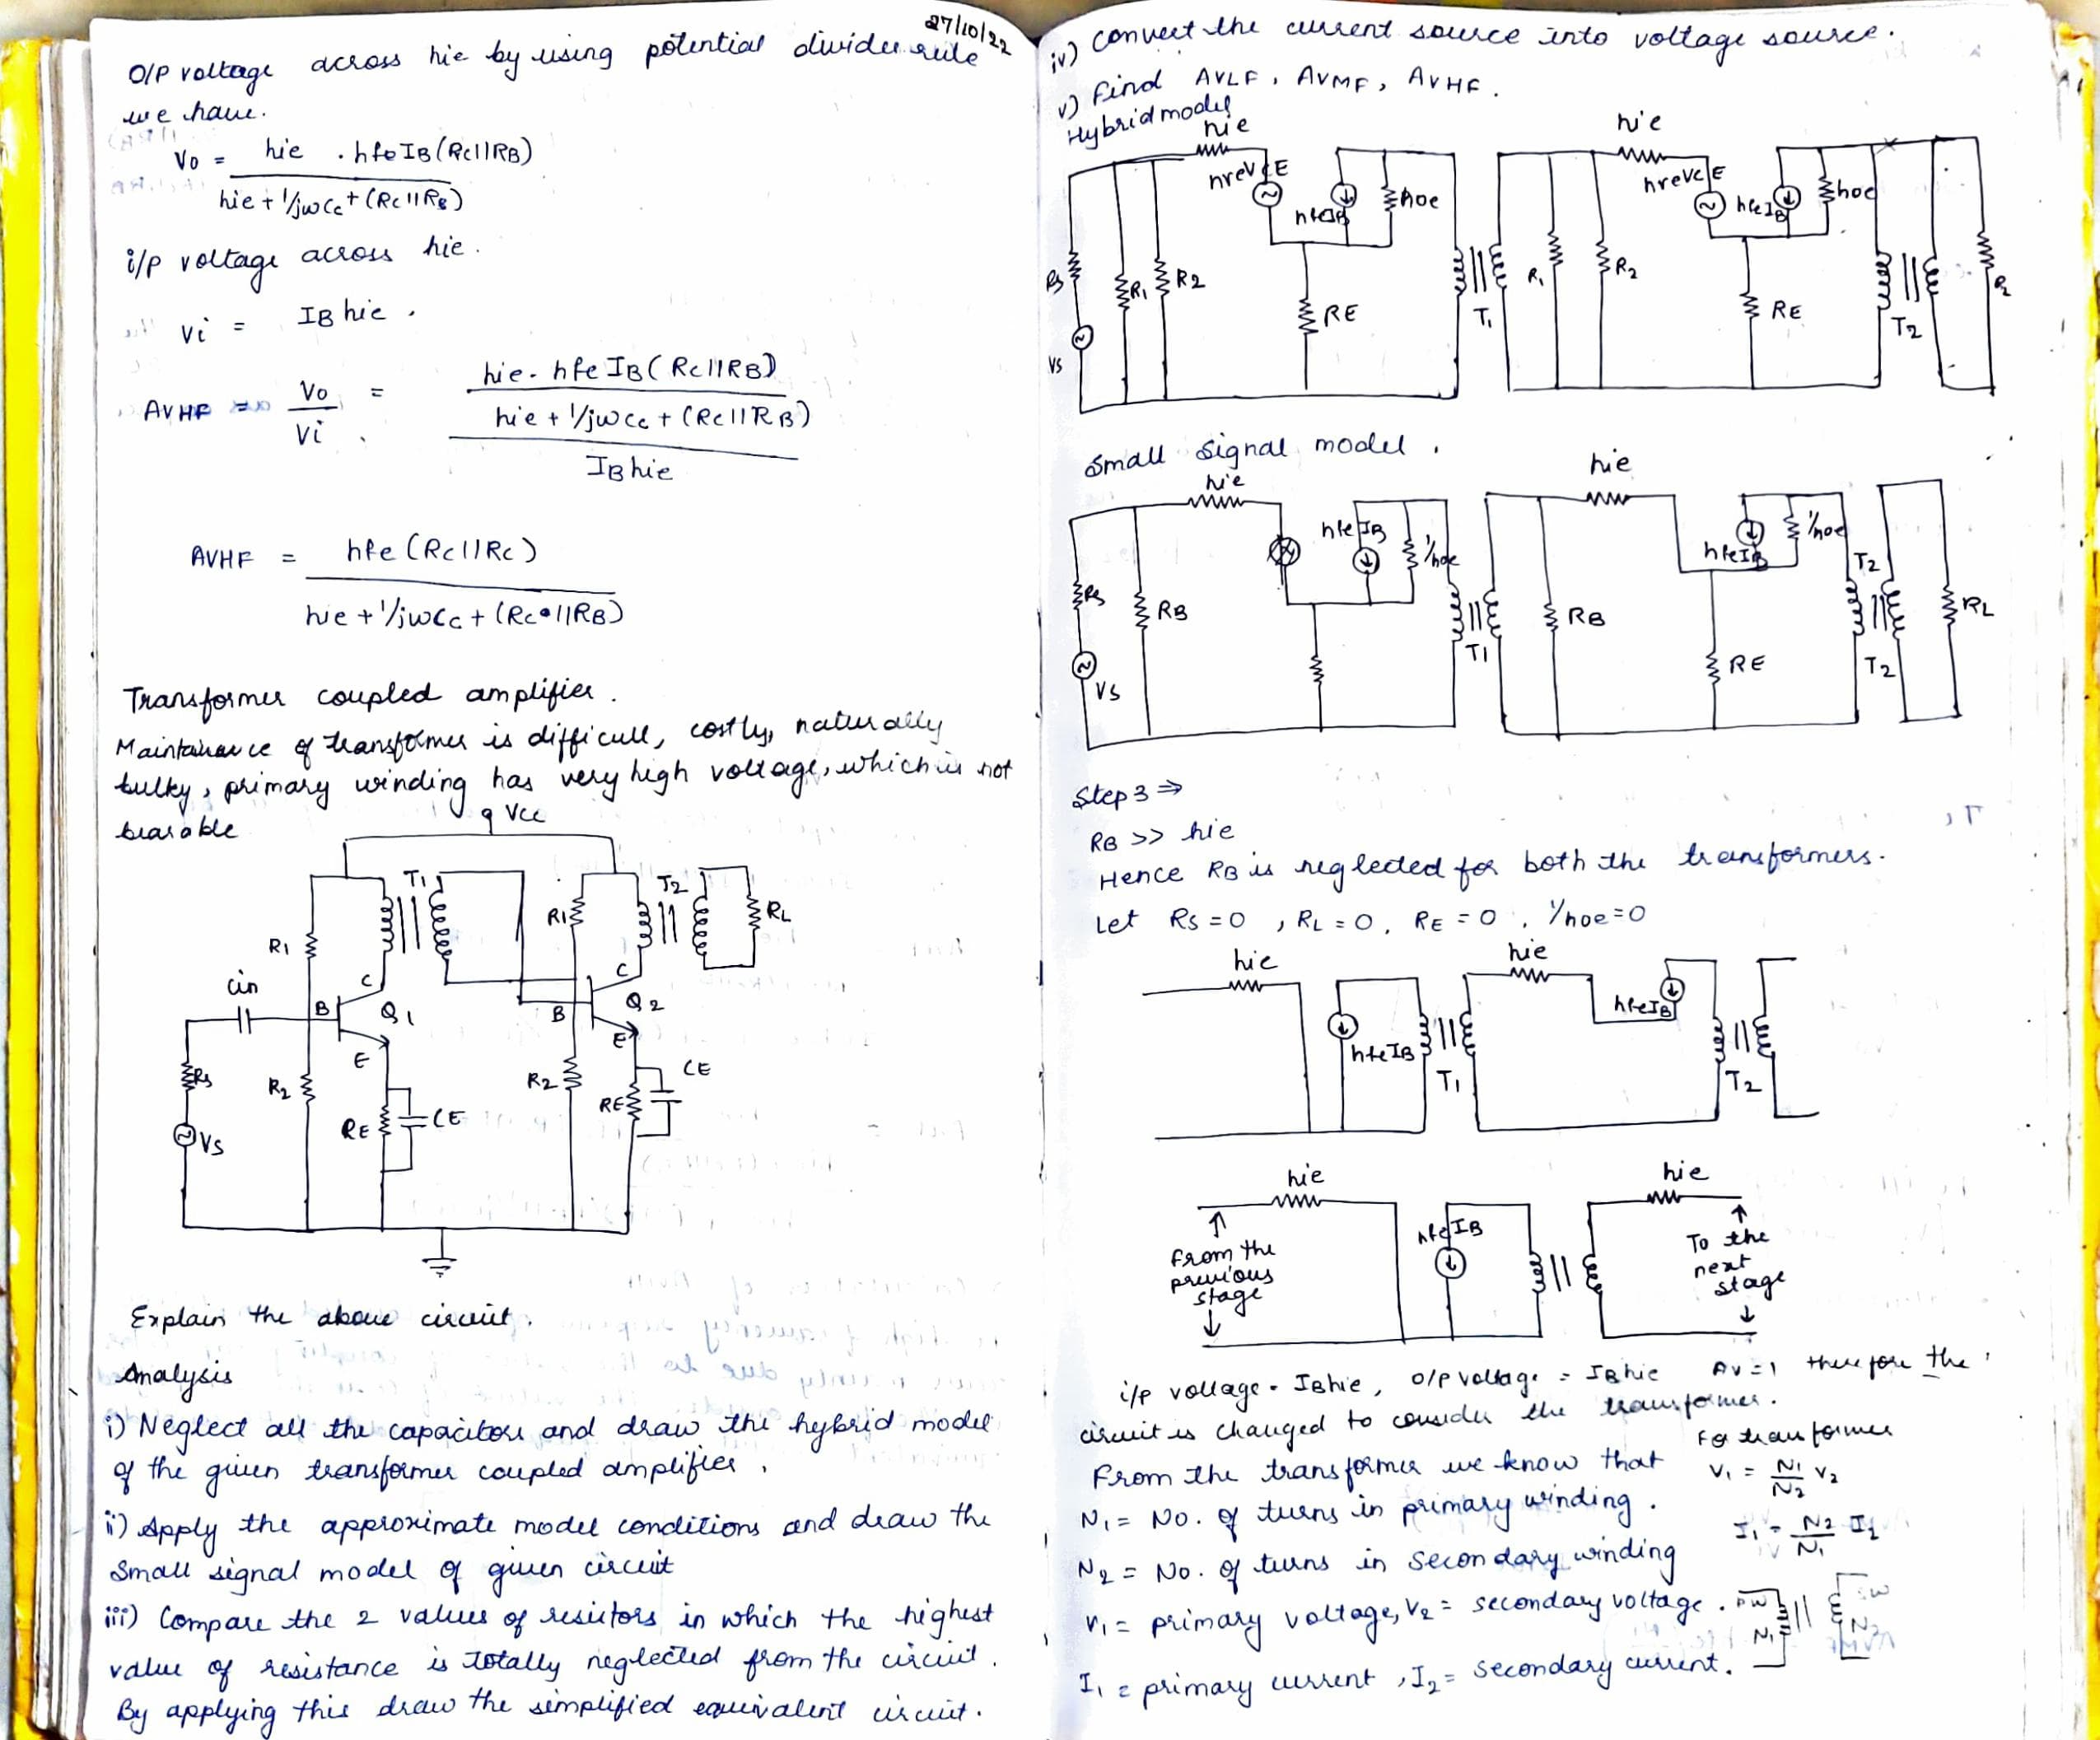 27/10/22
O/P voltage across hie by using potential divider rule
we have.
Vo = hie . hfe IB (Rc||RB)
hie + 1/jwCc + (Rc||RB)
i/p voltage across hie.
Vi = IB hie.
AVHF = Vo = hie. hfe IB (Rc||RB)
Vi hie + 1/jwCc + (Rc||RB)
IB hie
AVHF = hfe (Rc||Rc)
hie + 1/jwCc + (Rc||RB)
Transformer coupled amplifier.
Maintainance of transformer is difficult, costly, naturally
bulky, primary winding has very high voltage, which is not
bearable
Vcc
T1 T2
R1 R1 RL
Cin C C
B Q1 B Q2
E E
Rs R2 R2 CE
RE CE RE
VS
Explain the above circuit.
Analysis
i) Neglect all the capacitors and draw the hybrid model
of the given transformer coupled amplifier.
ii) Apply the approximate model conditions and draw the
Small signal model of given circuit
iii) Compare the 2 values of resistors in which the highest
value of resistance is totally neglected from the circuit.
By applying this draw the simplified equivalent circuit.
iv) Convert the current source into voltage source.
v) Find AVLF, AVMF, AVHF.
Hybrid model
hie hie
hreVCE hfeIB hoe hreVCE hfeIB hoe
Rs R1 R2 RE T1 R1 R2 RE T2 RL
VS
Small signal model.
hie hie
hfeIB 1/hoe hfeIB 1/hoe
T2
Rs RB RB RL
T1 RE T2
VS
Step 3 ⇒
RB >> hie
Hence RB is neglected for both the transformers.
Let Rs = 0, RL = 0, RE = 0, 1/hoe = 0
hie hie
hfeIB hfeIB
T1 T2
hie hie
hfeIB
From the previous stage
To the next stage
i/p voltage = IBhie, o/p voltage = IBhie AV = 1 therefore the
circuit is changed to consider the transformer.
For transformer
From the transformer we know that V1 = N1/N2 V2
N1 = No. of turns in primary winding.
I1 = N2/N1 I2
N2 = No. of turns in secondary winding
V1 = primary voltage, V2 = secondary voltage. PW SW
N1 N2
I1 = primary current, I2 = secondary current.